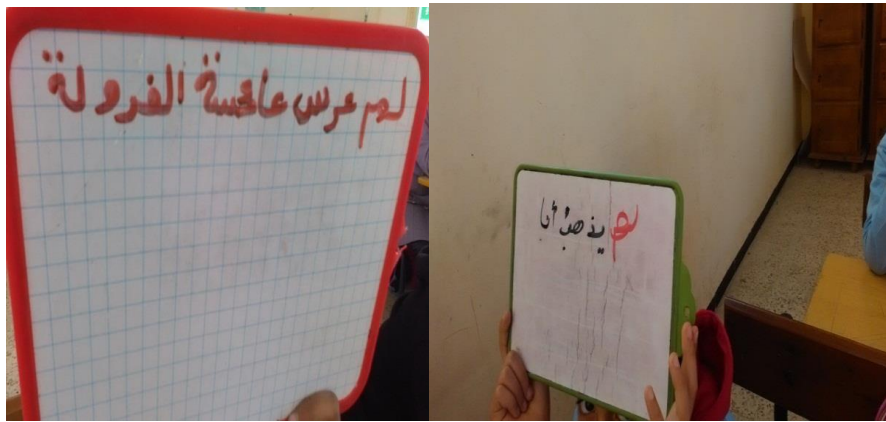 لهم عرس عائسة الفرولة
لم يذهب أبا